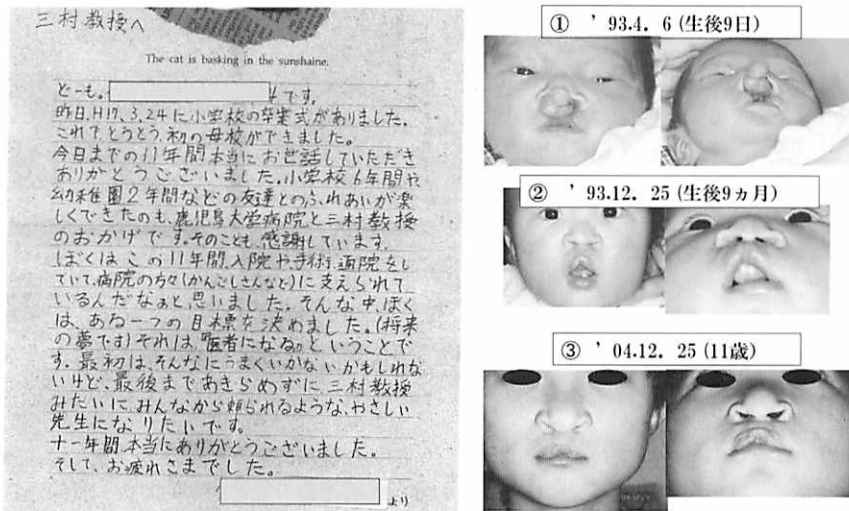 三村教授へ
The cat is basking in the sunshaine.
どーも。
です。
昨日、H17、3、24に小学校の卒業式がありました。
これでとうとう、初の母校ができました。
今日までの11年間本当にお世話していただき
ありがとうございました。小学校6年間や
幼稚園2年間などの友達とのふれあいが楽
しくできたのも、鹿児島大学病院と三村教授
のおかげです。そのことも、感謝しています。
ぼくはこの11年間、入院や、手術、通院をし
ていて、病院の方々(かんごしさんなど)に支えられて
いるんだなぁと思いました。そんな中、ぼく
は、ある一つの目標を決めました。(将来
の夢です)それは『医者になる』ということで
す。最初は、そんなにうまくいかないかもしれな
いけど、最後まであきらめずに、三村教授
みたいに、みんなから頼られるような、やさしい
先生になりたいです。
十一年間本当にありがとうございました。
そして、お疲れさまでした。
より
① ’93.4. 6 (生後9日)
② ’93.12. 25 (生後9ヵ月)
③ ’04.12. 25 (11歳)